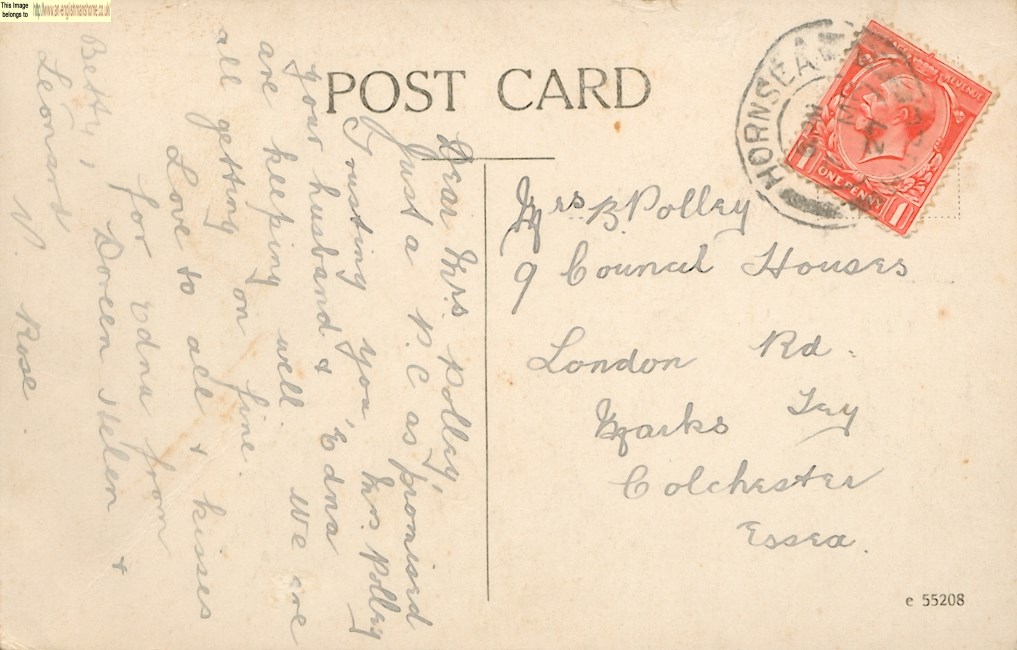 This Image
belongs to
http://www.an-englishmanshome.co.uk
POST CARD
HORNSEA
POSTAGE REVENUE
1 ONE PENNY 1
Dear Mrs Polley,
Just a P.C as promised
Trusting you, Mr Polley
your husband & Edna
are keeping well. We are
all getting on fine.
Love to all + kisses
for Edna from
Doreen Helen +
Betty,
Leonard
V. Rose
Mrs B. Polley
9 Council Houses
London Rd.
Marks Tey
Colchester
Essex.
e 55208